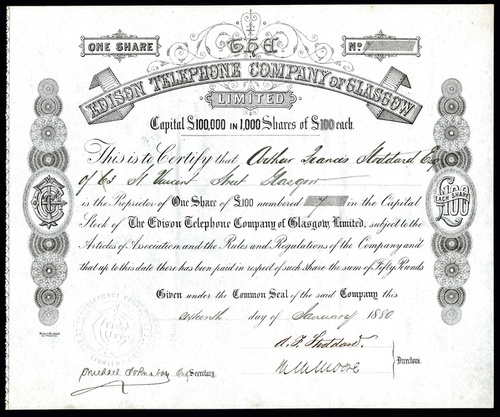 ONE SHARE
THE
No.
EDISON TELEPHONE COMPANY OF GLASGOW
LIMITED
Capital £100,000 IN 1,000 Shares of £100 each.
This is to Certify that Arthur Francis Stoddard Esq
of 63 St Vincent Street Glasgow
is the Proprietor of One Share of £100 numbered in the Capital
Stock of The Edison Telephone Company of Glasgow, Limited, subject to the
Articles of Association and the Rules and Regulations of the Company and
that up to this date there has been paid in respect of such share the sum of Fifty Pounds
EACH SHARE
£100
Given under the Common Seal of the said Company this
day of January 1880
A. F. Stoddard.
Directors.
Secretary.